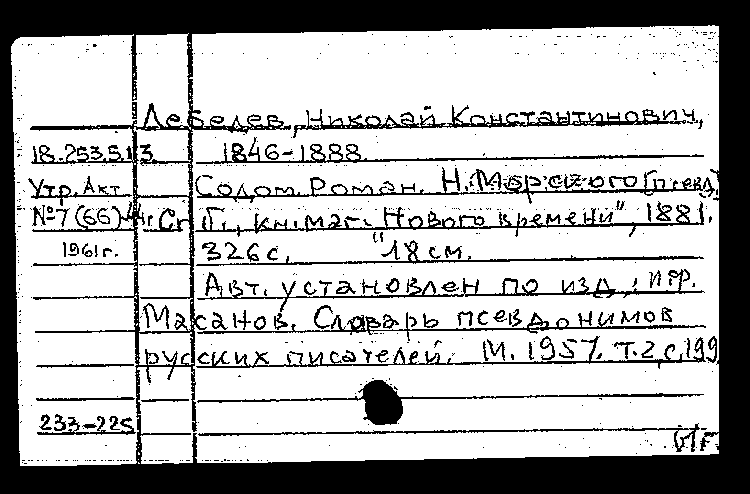 Лебедев, Николай Константинович,
18.253.5.13 1846-1888
Утр. Акт Содом. Роман. Н. Морского [псевд]
№7(66) г. СПГ., кн. маг. "Нового времени", 1881.
1961г. 326 с. 18 см.
Авт. установлен по изд.: И.Ф.
Масанов. Словарь псевдонимов
русских писателей. М. 1957. Т.2, с.199
233-225